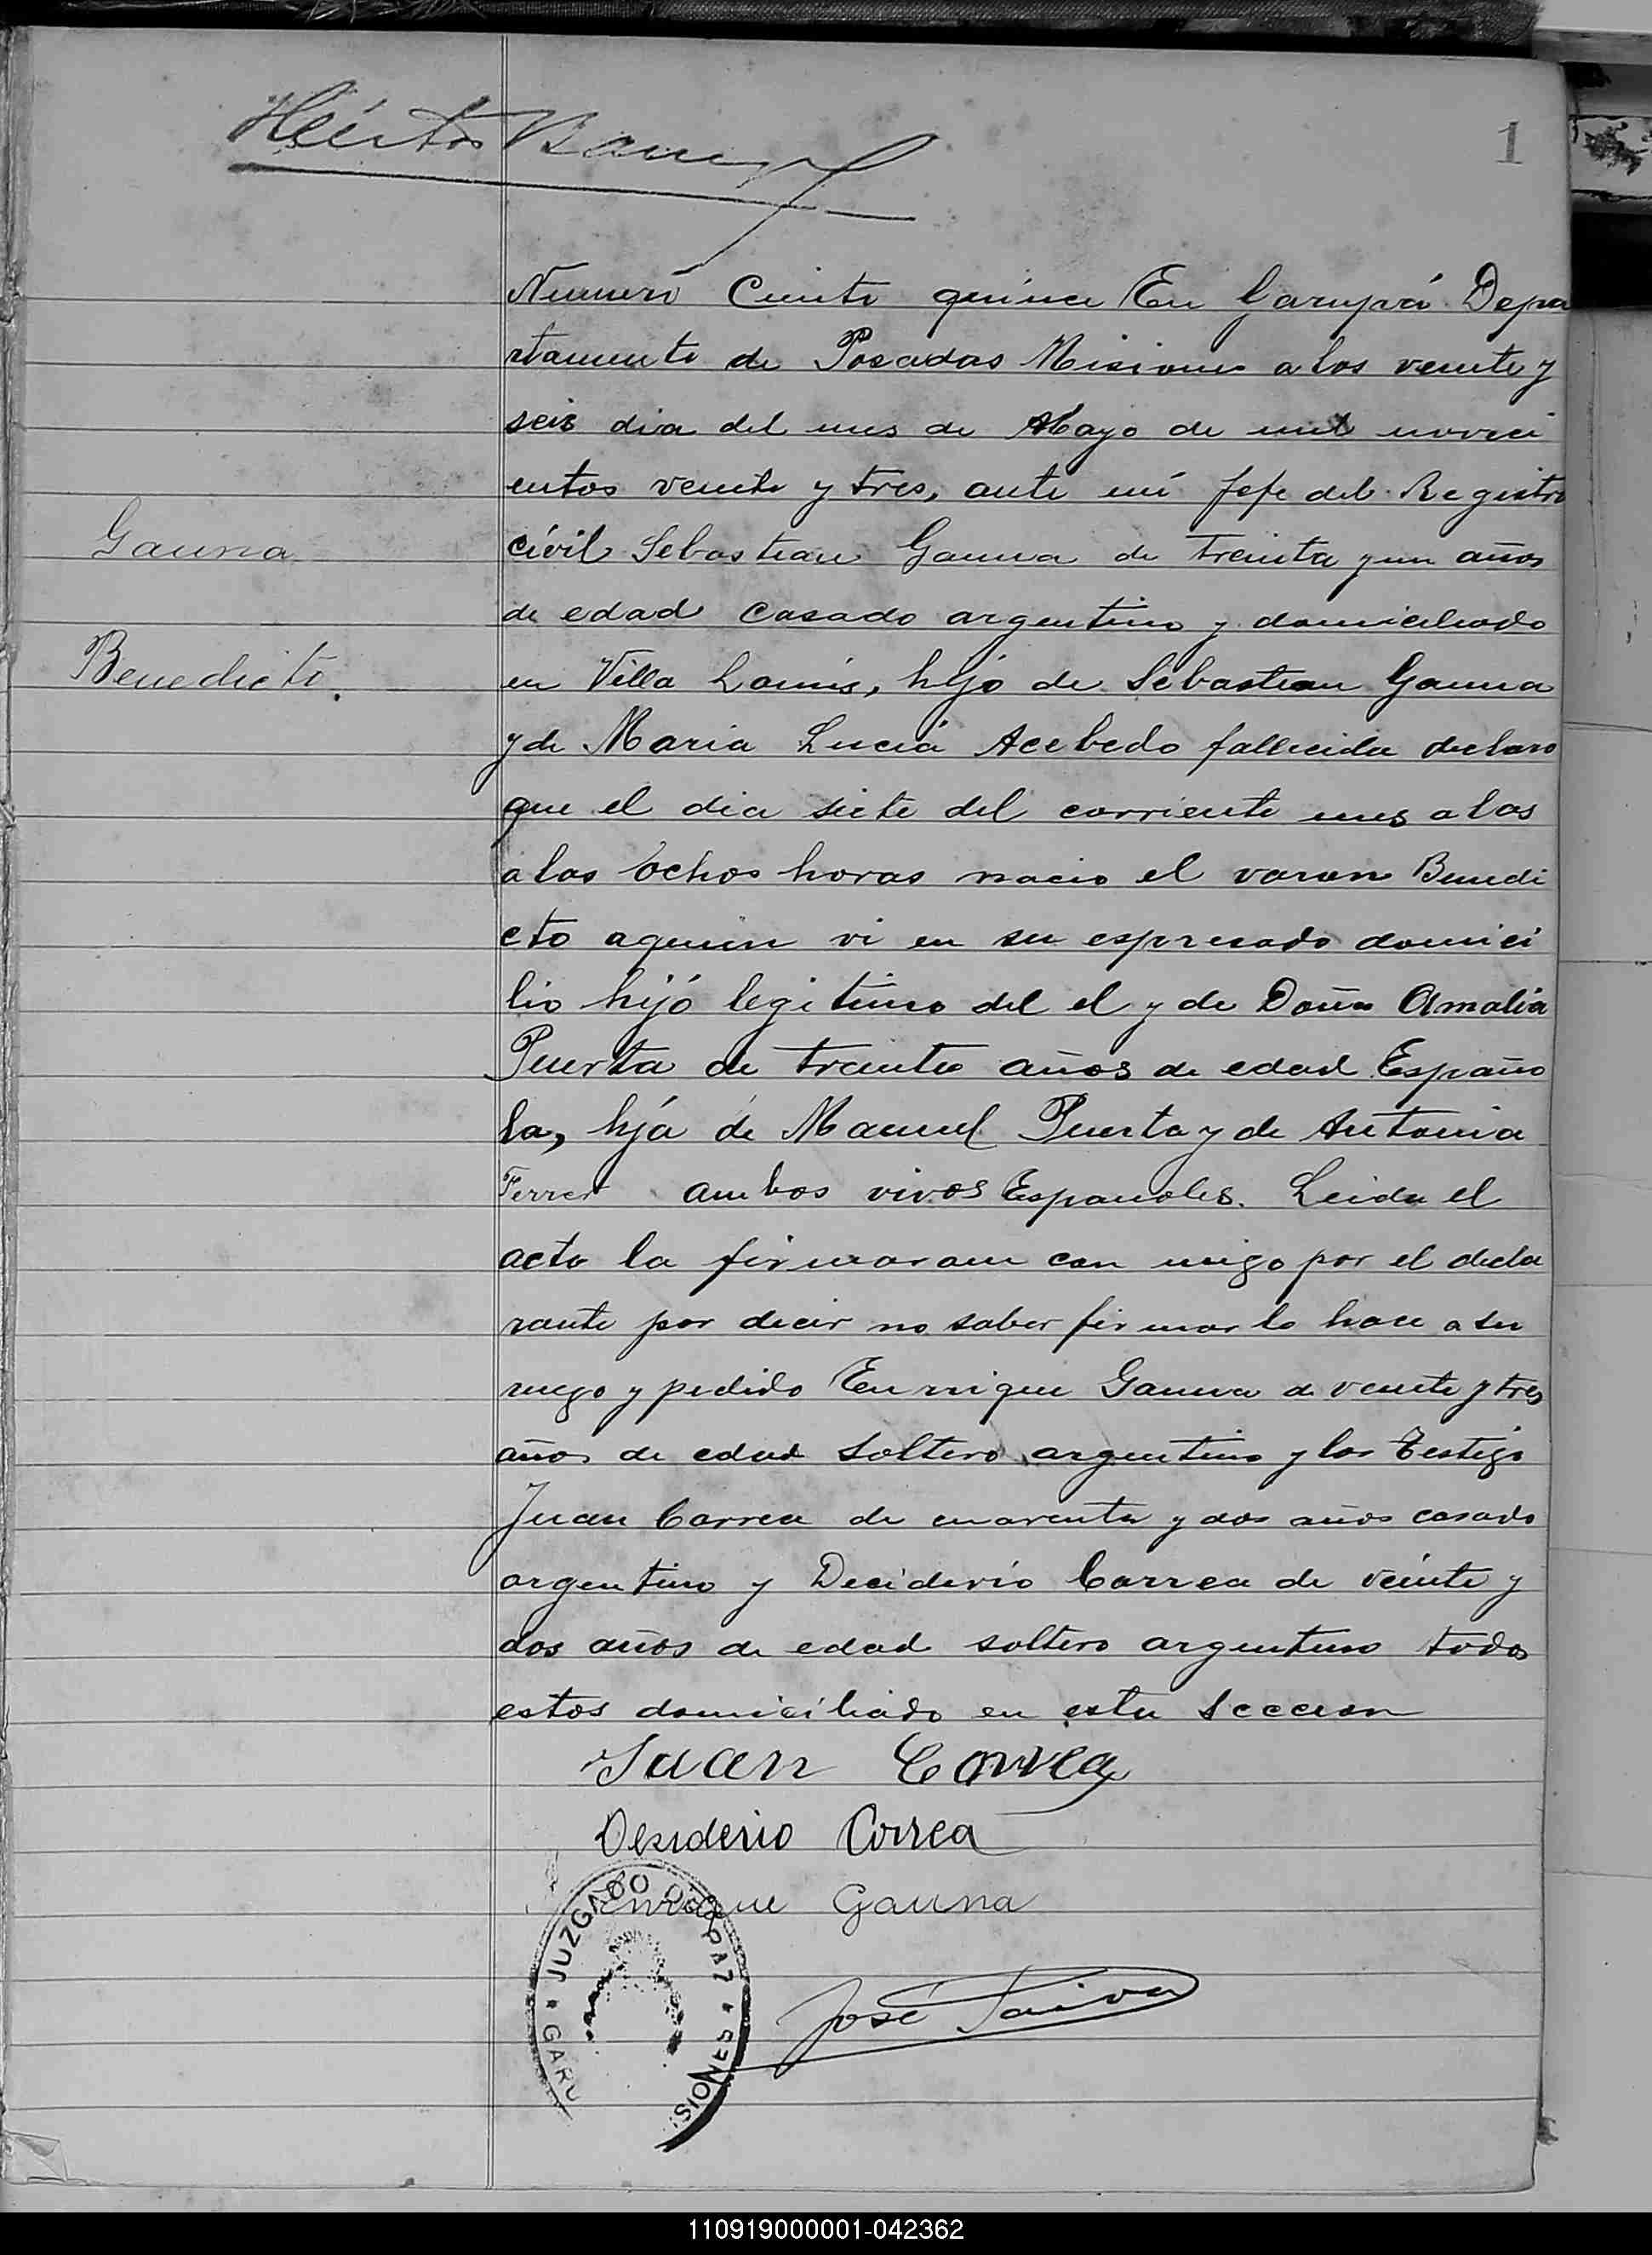 1
Numero Ciento quince En Garupá Depar
tamento de Posadas Misiones a los veinte y
seis dia del mes de Mayo de mil noveci
entos veinte y tres, ante mi Jefe del Registro
Civil Sebastian Gauna de treinta y un años
Gauna
de edad casado argentino y domiciliado
Benedicto.
en Villa Lanus, hijo de Sebastian Gauna
y de Maria Lucia Acebedo fallecida declaro
que el dia siete del corriente mes a las
a las ochos horas nacio el varon Benedi
cto aquien vi en su espresado domici
lio hijó legitimo del el y de Doña Amalia
Puerta de treinta años de edad Españo
la, hija de Manuel Puerta y de Antonia
Ferrer ambos vivos Españoles. Leida el
acta la firmaram con migo por el decla
rante por decir no saber firmar lo hace a su
ruego y pedido Enrrique Gauna de veinte y tres
años de edad soltero argentino y los testigo
Juan Correa de cuarenta y dos años casado
argentino y Deciderio Correa de veinte y
dos años de edad soltero argentino todos
estos domiciliado en esta Seccion
Juan Correa
Desiderio Correa
Enrique Gauna
JUZGADO DE PAZ
GARU
SIONES
José Paiva
110919000001-042362